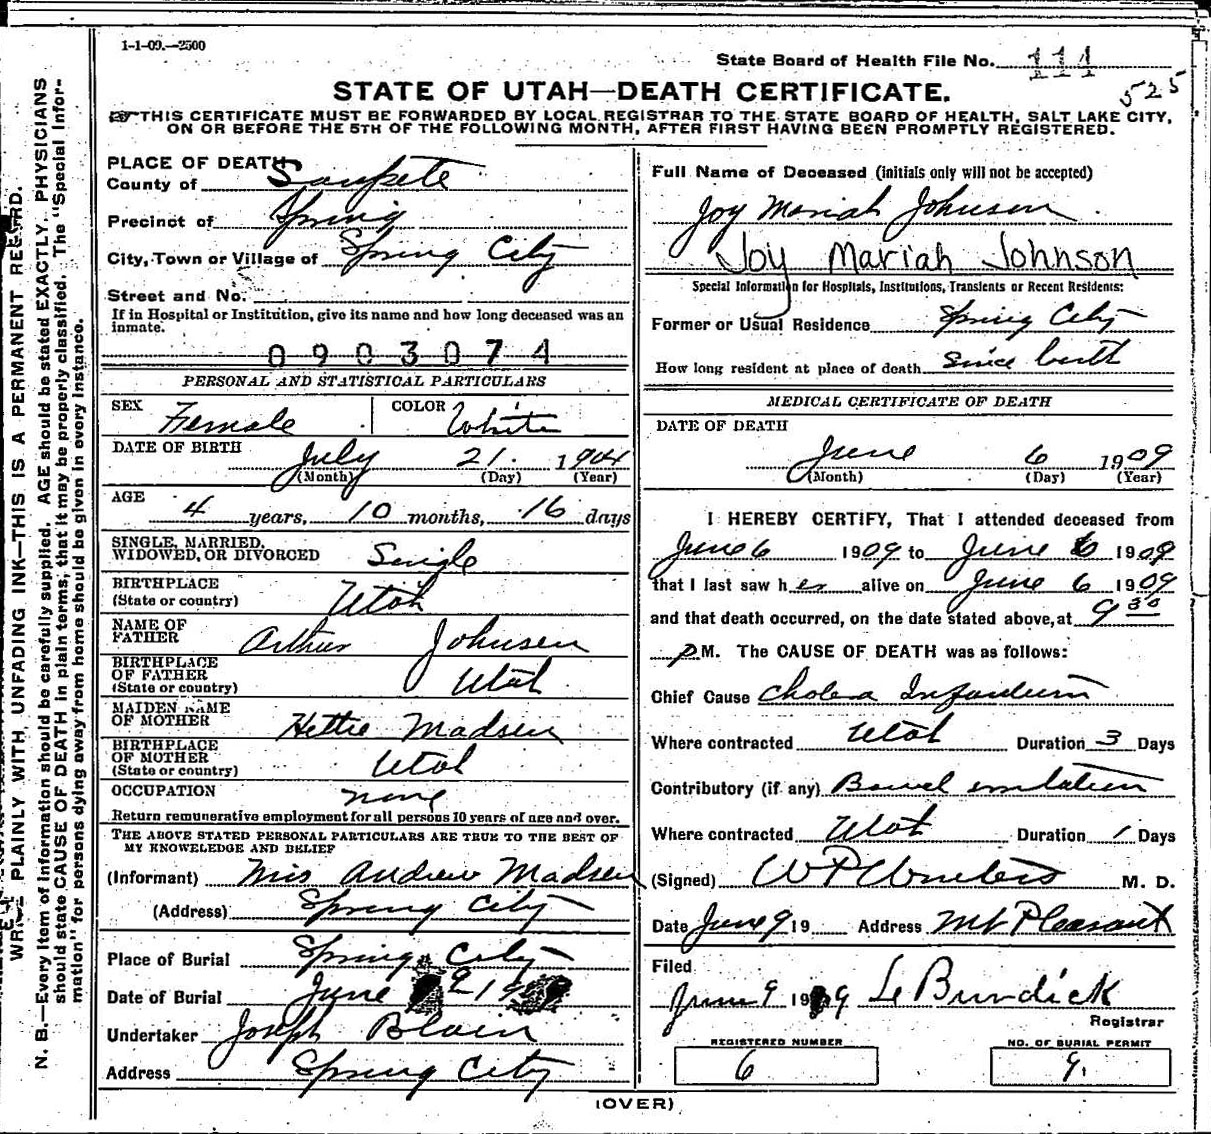 1-1-09.—2500
State Board of Health File No. 111
525
STATE OF UTAH—DEATH CERTIFICATE.
THIS CERTIFICATE MUST BE FORWARDED BY LOCAL REGISTRAR TO THE STATE BOARD OF HEALTH, SALT LAKE CITY,
ON OR BEFORE THE 5TH OF THE FOLLOWING MONTH, AFTER FIRST HAVING BEEN PROMPTLY REGISTERED.
WRITE PLAINLY WITH UNFADING INK—THIS IS A PERMANENT RECORD.
N. B.—Every item of information should be carefully supplied. AGE should be stated EXACTLY. PHYSICIANS
should state CAUSE OF DEATH in plain terms, that it may be properly classified. The "Special Infor-
mation" for persons dying away from home should be given in every instance.
PLACE OF DEATH
County of Sanpete
Precinct of Spring
City, Town or Village of Spring City
Street and No.
If in Hospital or Institution, give its name and how long deceased was an
inmate.
0903074
PERSONAL AND STATISTICAL PARTICULARS
SEX Female COLOR White
DATE OF BIRTH July 21. 1904
(Month) (Day) (Year)
AGE 4 years, 10 months, 16 days
SINGLE, MARRIED,
WIDOWED, OR DIVORCED Single
BIRTHPLACE
(State or country) Utah
NAME OF
FATHER Arthur Johnson
BIRTHPLACE
OF FATHER
(State or country) Utah
MAIDEN NAME
OF MOTHER Hettie Madsen
BIRTHPLACE
OF MOTHER
(State or country) Utah
OCCUPATION none
Return remunerative employment for all persons 10 years of age and over.
THE ABOVE STATED PERSONAL PARTICULARS ARE TRUE TO THE BEST OF
MY KNOWELEDGE AND BELIEF
(Informant) Mrs Andrew Madsen
(Address) Spring City
Place of Burial Spring City
Date of Burial June 9 19
Undertaker Joseph Blain
Address Spring City
Full Name of Deceased (initials only will not be accepted)
Joy Mariah Johnson
Joy Mariah Johnson
Special Information for Hospitals, Institutions, Transients or Recent Residents:
Former or Usual Residence Spring City
How long resident at place of death since birth
MEDICAL CERTIFICATE OF DEATH
DATE OF DEATH
June 6 1909
(Month) (Day) (Year)
I HEREBY CERTIFY, That I attended deceased from
June 6 1909 to June 6 1909
that I last saw her alive on June 6 1909
and that death occurred, on the date stated above, at 9 30
p M. The CAUSE OF DEATH was as follows:
Chief Cause Cholera Infantum
Where contracted Utah Duration 3 Days
Contributory (if any) Bowel irritation
Where contracted Utah Duration 1 Days
(Signed) W P Winters M. D.
Date June 9 19 Address Mt Pleasant
Filed
June 9 1909 L Burdick
Registrar
REGISTERED NUMBER
6
NO. OF BURIAL PERMIT
9.
(OVER)